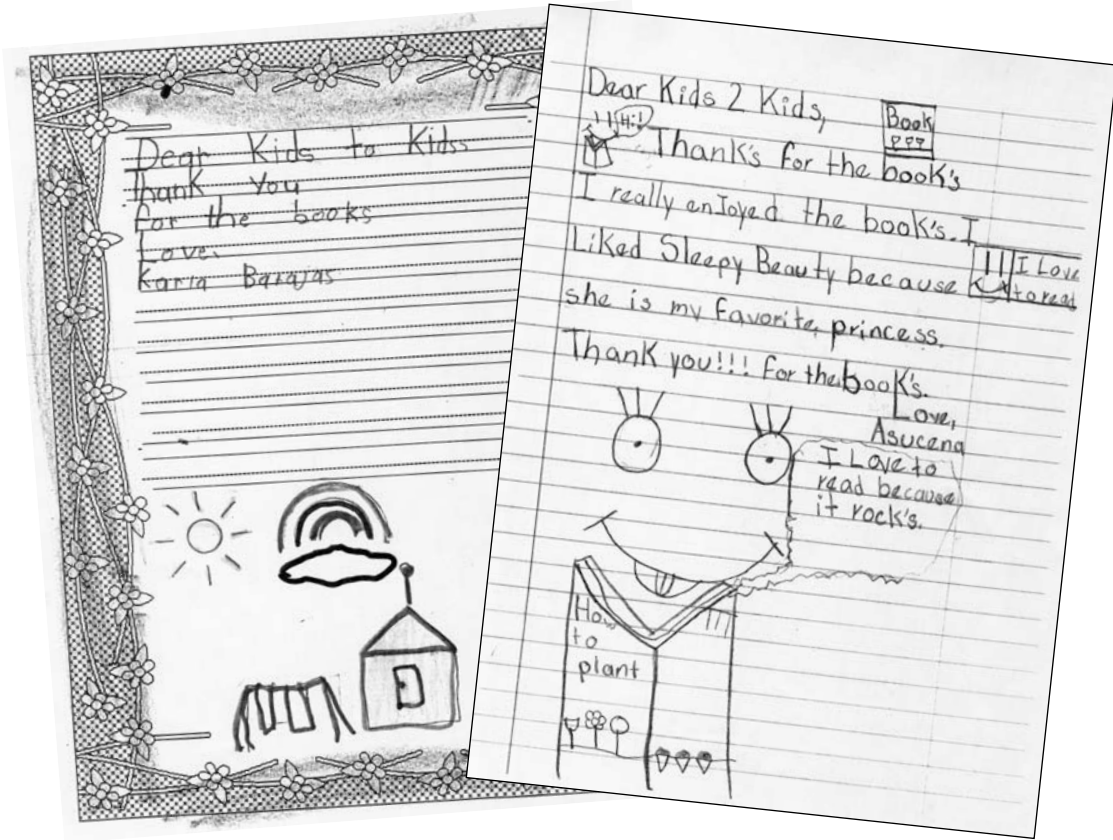 Dear Kids to Kidss
Thank You
for the books
Love,
Karla Barajas
Dear Kids 2 Kids,
Book
Hi!
Thank's for the book's
I really enJoyed the book's. I
Liked Sleepy Beauty because
I Love
to read
she is my favorite, princess.
Thank you!!! for the book's.
Love,
Asucena
I Love to
read because
it rock's.
How
to
plant